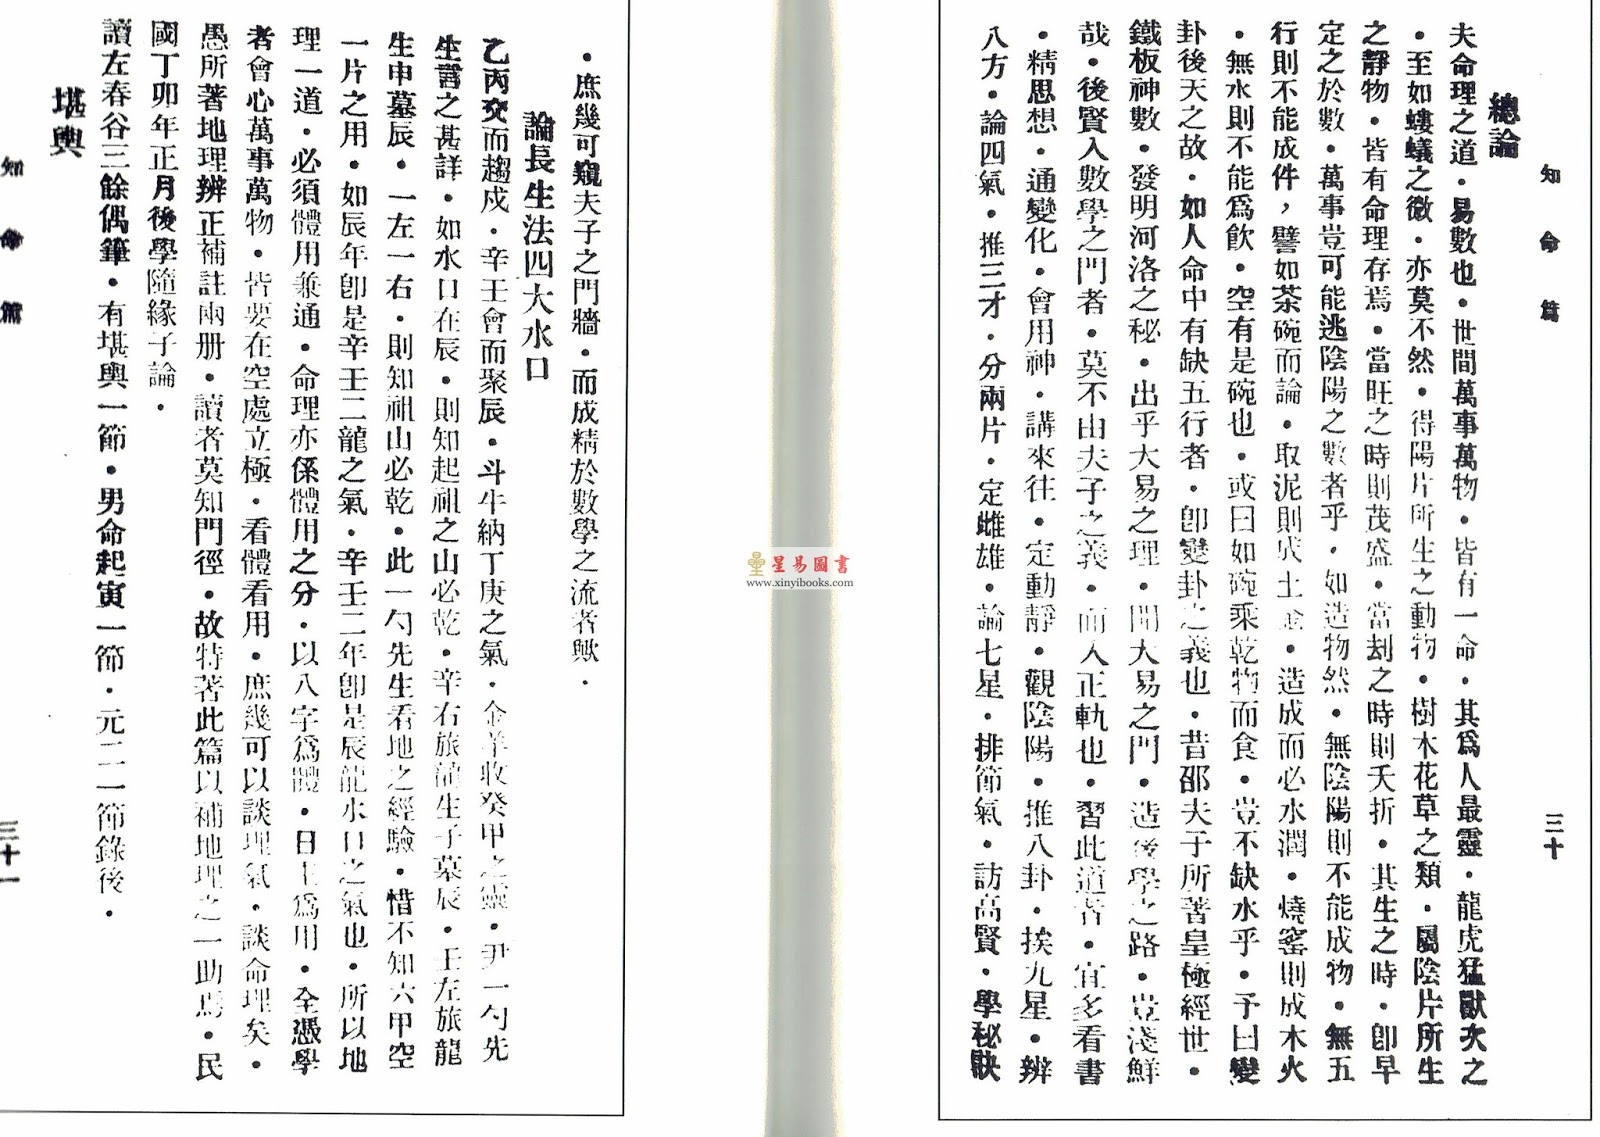 知命篇
三十
總論
夫命理之道．易數也．世間萬事萬物．皆有一命．其爲人最靈．龍虎猛獸次之
．至如螻蟻之微．亦莫不然．得陽片所生之動物．樹木花草之類．屬陰片所生
之靜物．皆有命理存焉．當旺之時則茂盛．當刦之時則夭折．其生之時．卽早
定之於數．萬事豈可能逃陰陽之數者乎．如造物然．無陰陽則不能成物．無五
行則不能成件，譬如茶碗而論．取泥則成土金．造成而必水潤．燒窰則成木火
．無水則不能爲飲．空有是碗也．或曰如碗乘乾物而食．豈不缺水乎．予曰變
卦後天之故．如人命中有缺五行者．卽變卦之義也．昔邵夫子所著皇極經世．
鐵板神數．發明河洛之秘．出乎大易之理．開大易之門．造後學之路．豈淺鮮
哉．後賢入數學之門者．莫不由夫子之義．而入正軌也．習此道者．宜多看書
．精思想．通變化．會用神．講來往．定動靜．觀陰陽．推八卦．挨九星．辨
八方．論四氣．推三才．分兩片．定雌雄．論七星．排節氣．訪高賢．學秘訣
．庶幾可窺夫子之門牆．而成精於數學之流者歟．
論長生法四大水口
乙丙交而趨戍．辛壬會而聚辰．斗牛納丁庚之氣．金羊收癸甲之靈．尹一勺先
生言之甚詳．如水口在辰．則知起祖之山必乾．辛右旅龍生子墓辰．壬左旅龍
生申墓辰．一左一右．則知祖山必乾．此一勺先生看地之經驗．惜不知六甲空
一片之用．如辰年卽是辛壬二龍之氣．辛壬二年卽是辰龍水口之氣也．所以地
理一道．必須體用兼通．命理亦係體用之分．以八字爲體．日主爲用．全憑學
者會心萬事萬物．皆要在空處立極．看體看用．庶幾可以談理氣．談命理矣．
愚所著地理辨正補註兩册．讀者莫知門徑．故特著此篇以補地理之一助焉．民
國丁卯年正月後學隨緣子論．
讀左春谷三餘偶筆．有堪輿一節．男命起寅一節．元二一節錄後．
堪輿
知命篇
三十一
星易圖書
www.xinyibooks.com